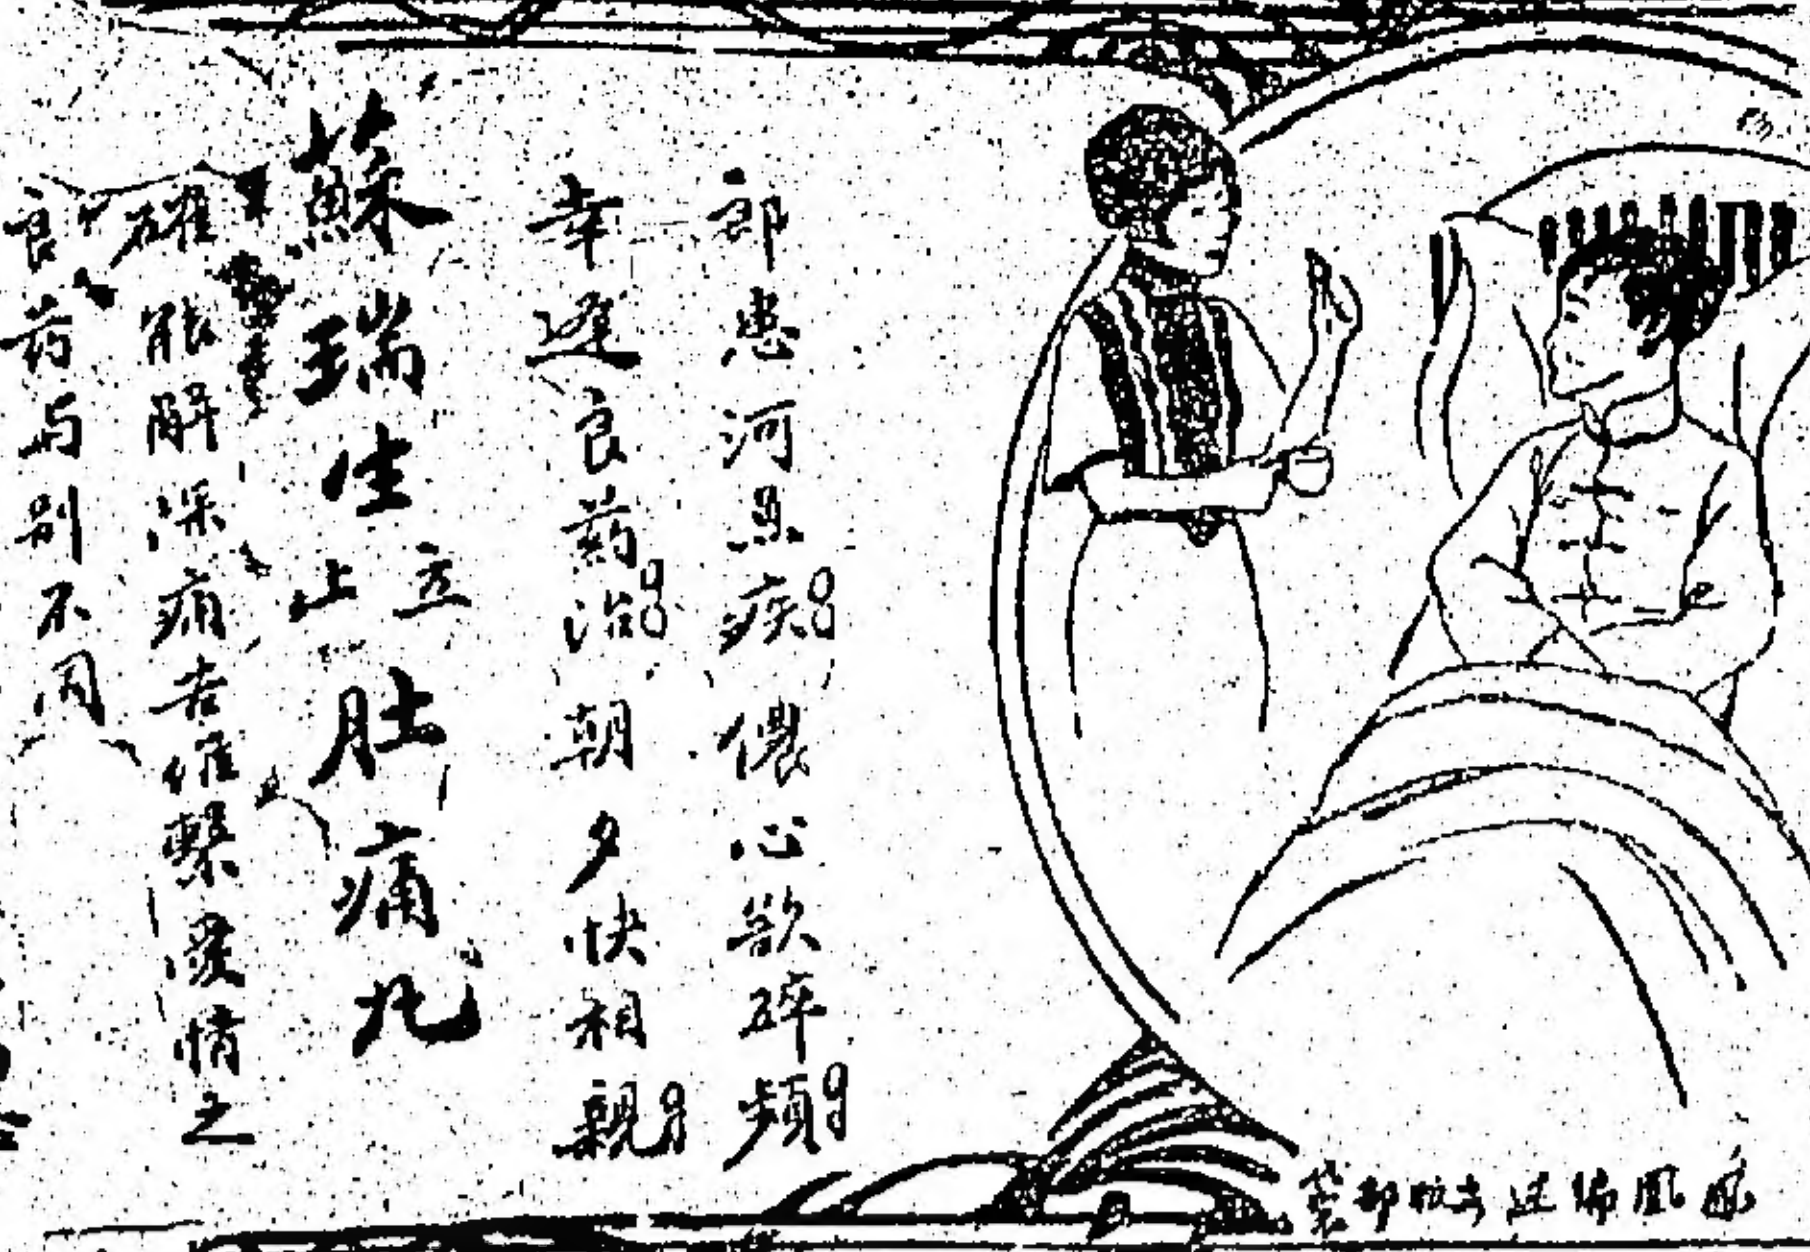 郎患河魚疾儂心欲碎頻
幸逢良藥治朝夕快相親
蘇瑞生立止肚痛丸
確能解深痛苦維繫愛情之
良药与别不同